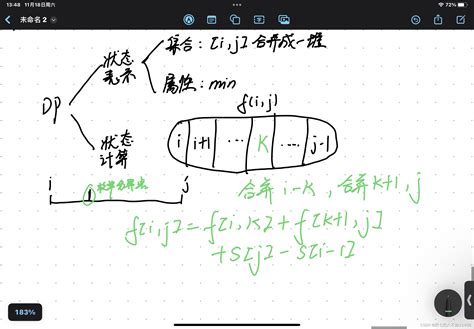 13:48 11月18日周六
72%
未命名 2
集合：[i,j] 合并成一堆
状态
表示
属性：min
DP
f[i,j]
状态
计算
i i+1 … K …… j-1
i j
枚举分界点
合并 i-K，合并 K+1, j
f[i,j] = f[i,K] + f[K+1,j]
+ S[j] - S[i-1]
183%